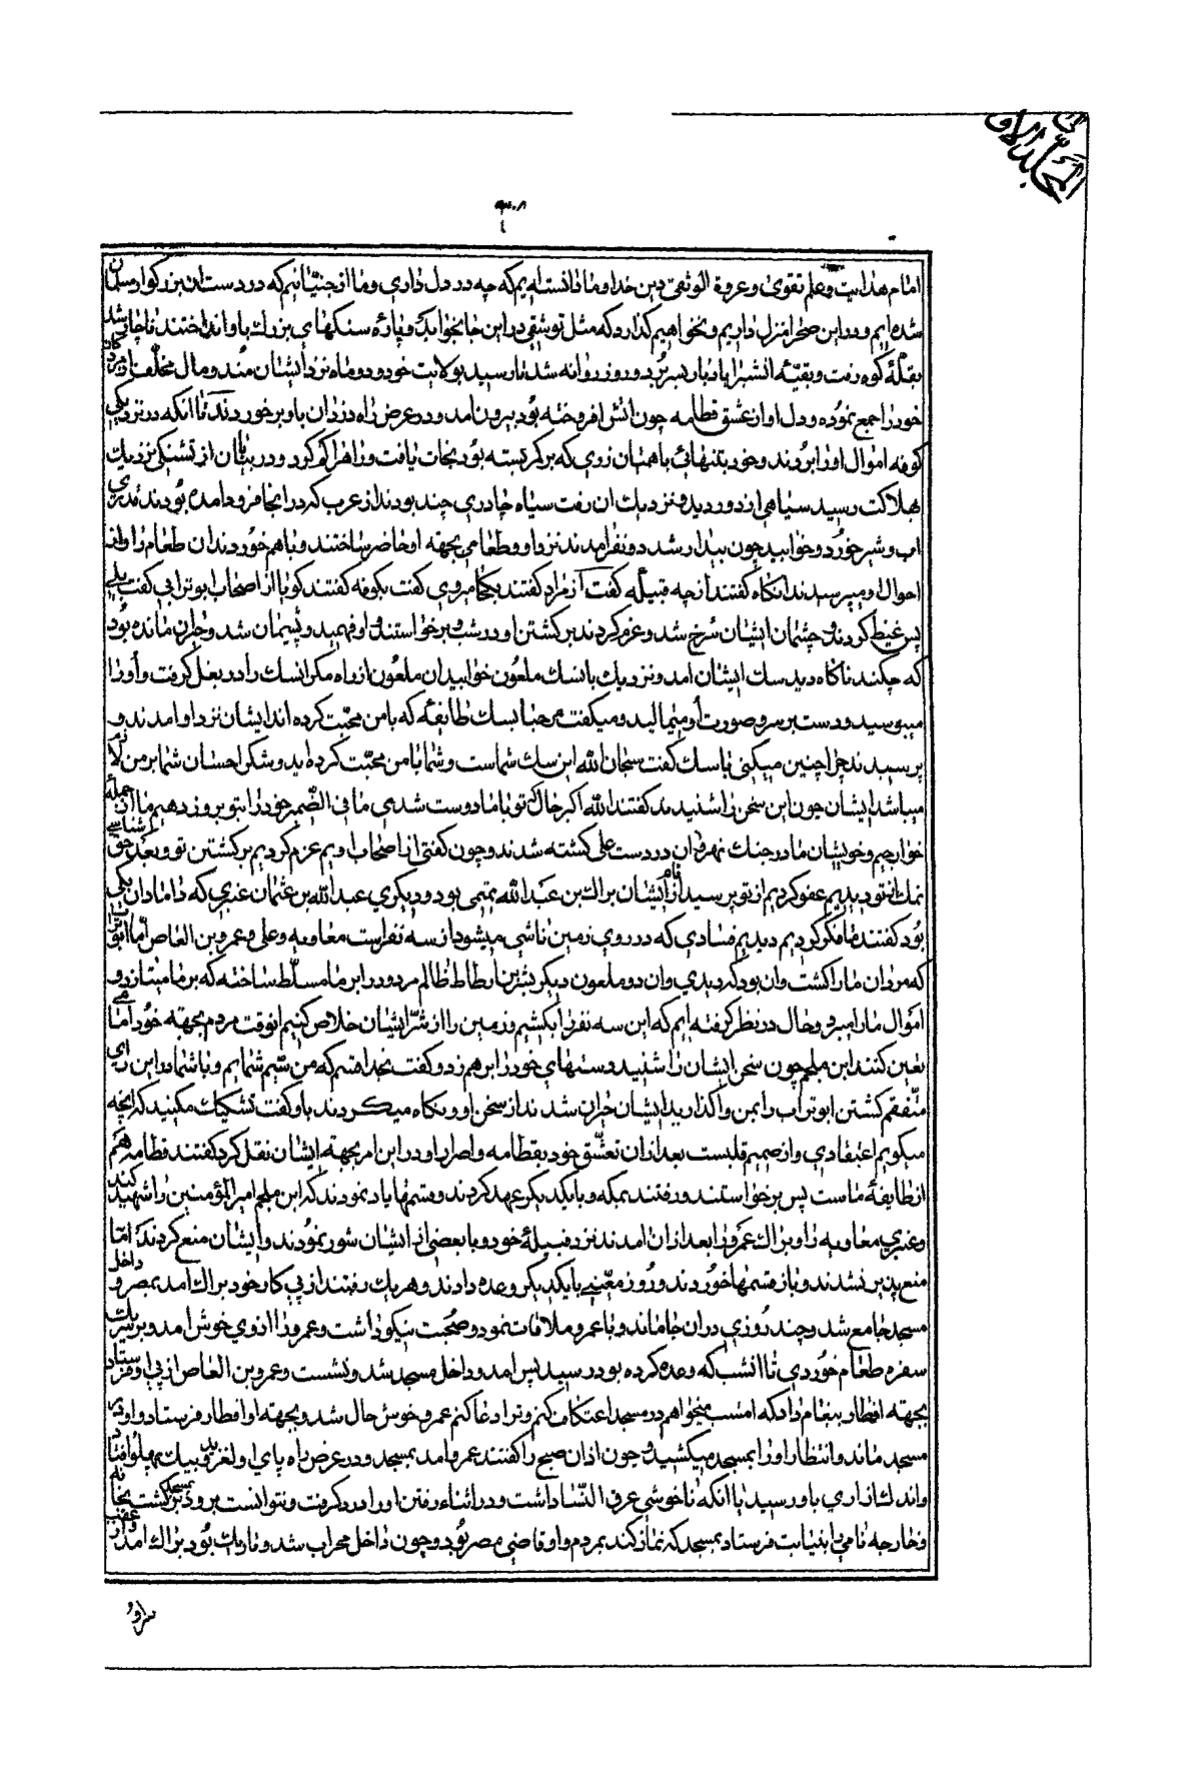 المجلد الاول
۳۰۸
امام هدایت وعلم تقوی وعروة الوثقی دین خدا وما دانسته ایم که چه در دل داری وما از جنّیانیم که در دست ان بزرکوار مسلمان
شده ایم ودر این صحرا منزل داریم ونخواهیم کذارد که مثل تو شقی در این جا بخوابد وپاره سنکهای بزرک باو انداختند تا جائی شد
بقلّهٔ کوه رفت وبقیّه انشب را بسر برد وروز روانه شد تا رسید بولایت خود ودو ماه نزد ایشان ماند ومال مخلّفات
خود را جمع نموده ودل او از عشق قطامه چون اتش افروخته بود بیرون امد ودر عرض راه دزدان باو برخوردند تا انکه در نزدیکی
کوفه اموال او را بردند وخود بتنهائی با همیان زری که بر کمر بسته بود نجات یافت وراه را کم کرد ودر بیابان از تشنکی نزدیک
بهلاکت رسید سیاهی از دور دید ونزدیک ان رفت سیاه چادری چند بودند از عرب که در انجا فرود امده بودند قدری
اب وشیر خورد وخوابید چون بیدار شد دو نفر امدند نزد او وطعامی بجهته او حاضر ساختند وباهم خوردند ان طعام را واز
احوال او میپرسیدند انکاه کفتند از چه قبیلهٔ کفت از مراد کفتند بکجا میروی کفت بکوفه کفتند کویا از اصحاب ابو ترابی کفت بلی
پس غیظ کردند وچشمان ایشان سُرخ شد وعزم کردند بر کشتن او در شب وبرخواستند او فهمید وپشیمان شد وحیران مانده بود
که چکند ناکاه دید سک ایشان امد ونزدیک بانسک ملعون خوابید ان ملعون از راه مکر انسک را در بغل کرفت واو را
میبوسید ودست بر سر وصورت او میمالید ومیکفت مرحبا بسک طائفهٔ که با من محبّت کرده اند ایشان نزد او امدند و
پرسیدند چرا چنین میکنی با سک کفت سبحان الله این سک شماست وشما با من محبّت کرده اید وشکر احسان شما بر من لازم
میباشد ایشان چون این سخن را شنیدند کفتند الله اکبر حال که تو با ما دوست شدی ما فی الضّمیر خود را بتو بروز دهیم ما از جمله
خوارجیم وخویشان ما در جنک نهروان در دست علی کشته شدند وچون کفتی از اصحاب اویم عزم کردیم بر کشتن تو وبعد حق شناسی
نمک از تو دیدیم عفو کردیم از تو پرسید نام ایشان براک بن عبد الله تمیمی بود ودیکری عبد الله بن عثمان عنبری که داماد ان یکی
بود کفتند ما فکر کردیم دیدیم فسادی که در روی زمین ناشی میشود از سه نفر است معاویه وعلی وعمرو بن العاص امّا ابو تراب
که مردان ما را کشت وان بود که دیدی وان دو ملعون دیکر
اموال ما را میبرد وحال در نظر کرفته ایم که این سه نفر را بکشیم وزمین را از شرّ ایشان خلاص کنیم انوقت مردم بجهته خود امامی
تعیین کنند ابن ملجم چون سخن ایشان را شنید دستهای خود را بر هم زد وکفت بخدا قسم که من سیّم شمایم وبا شما در این رای
متّفقم کشتن ابو تراب را بمن واکذارید ایشان حیران شدند از سخن او ونکاه میکردند باو کفت تشکیک مکنید که انچه
میکویم اعتقادی واز صمیم قلبست بعد از ان تعشّق خود بقطامه واصرار او در این امر بجهته ایشان نقل کرد کفتند قطامه هم
از طایفهٔ ماست پس برخواستند ورفتند بمکه وبا یکدیکر عهد کردند وقسمها یاد نمودند که ابن ملجم امیر المؤمنین را شهید کند
وعنبری معاویه را وبراک عمرو را بعد از ان امدند نزد قبیلهٔ خود وبا بعضی از ایشان شور نمودند وایشان منع کردند امّا
منع پذیر نشدند وباز قسمها خوردند وروز معیّنی با یکدیکر وعده دادند وهر یک رفتند از پی کار خود براک امد بمصر وداخل
مسجد جامع شد وچند روزی در ان جا ماند وبا عمرو ملاقات نمود وصحبت نیکو داشت وعمرو را از وی خوش امد وبر سر یک
سفره طعام خوردی تا انشب که وعده کرده بود در رسید پس امد وداخل مسجد شد ونشست وعمرو بن العاص از پی او فرستاد
بجهته افطار پیغام داد که امشب میخواهم در مسجد اعتکاف کنم وترا دعا کنم عمرو خوش حال شد وبجهته او افطار فرستاد واو در
مسجد ماند وانتظار او را بمسجد میکشید وچون اذان صبح را کفتند عمرو امد بمسجد ودر عرض راه پای او لغزید وبیک پهلو افتاد
واندک ازاری باو رسید با انکه ناخوشی عرق النّسا داشت ودر اثناء رفتن او را درد کرفت ونتوانست برود بمسجد برکشت بخانه
وخارجه نامی را بنیابت فرستاد بمسجد که نماز کند بمردم واو قاضی مصر بود وچون داخل محراب شد وتاریک بود براک امد از عقب
سر او